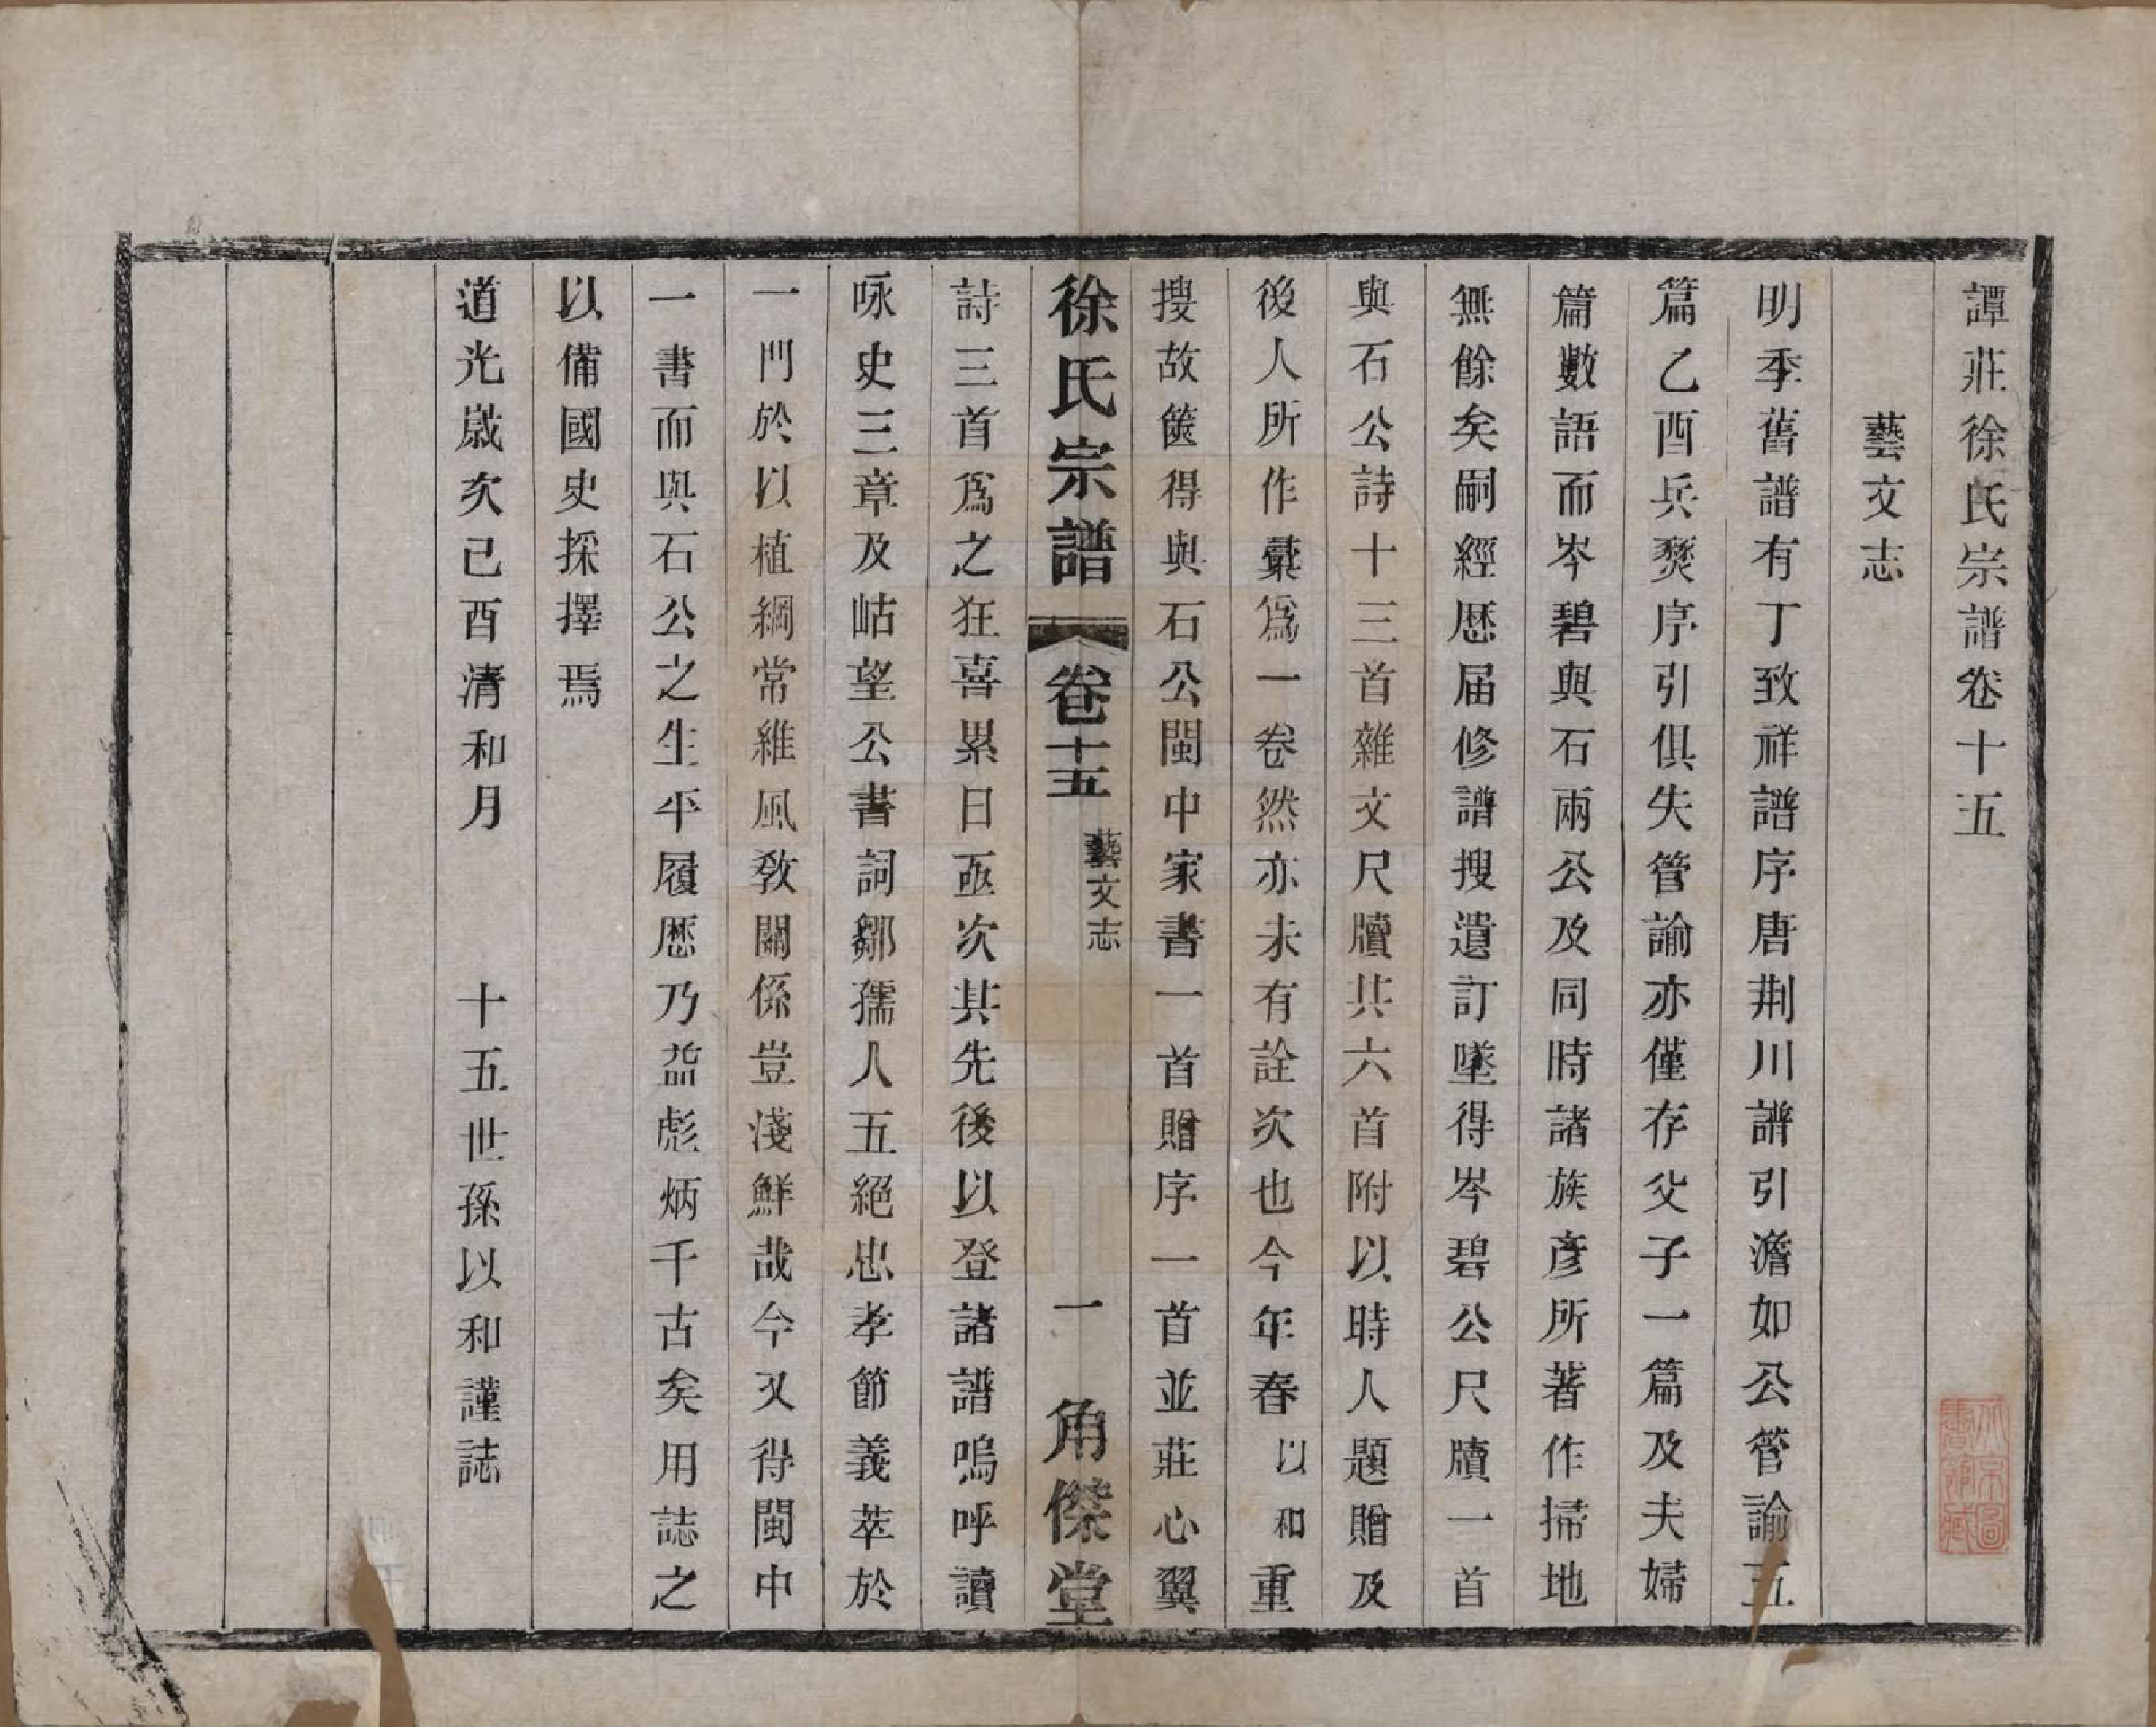 譚莊徐氏宗譜卷十五
藝文志
明季舊譜有丁致祥譜序唐荆川譜引澹如公管諭五
篇乙酉兵燹序引俱失管諭亦僅存父子一篇及夫婦
篇數語而岑碧與石兩公及同時諸族彥所著作掃地
無餘矣嗣經歷届修譜搜遺訂墜得岑碧公尺牘一首
與石公詩十三首雜文尺牘共六首附以時人題贈及
後人所作彙爲一卷然亦未有詮次也今年春以和重
搜故篋得與石公閩中家書一首贈序一首並莊心翼
徐氏宗譜
卷十五
藝文志
一
角傑堂
詩三首爲之狂喜累日亟次其先後以登諸譜嗚呼讀
咏史三章及岵望公書詞鄒孺人五絕忠孝節義萃於
一門於以植綱常維風教關係豈淺鮮哉今又得閩中
一書而與石公之生平履歷乃益彪炳千古矣用誌之
以備國史採擇焉
道光歲次己酉清和月 十五世孫以和謹誌